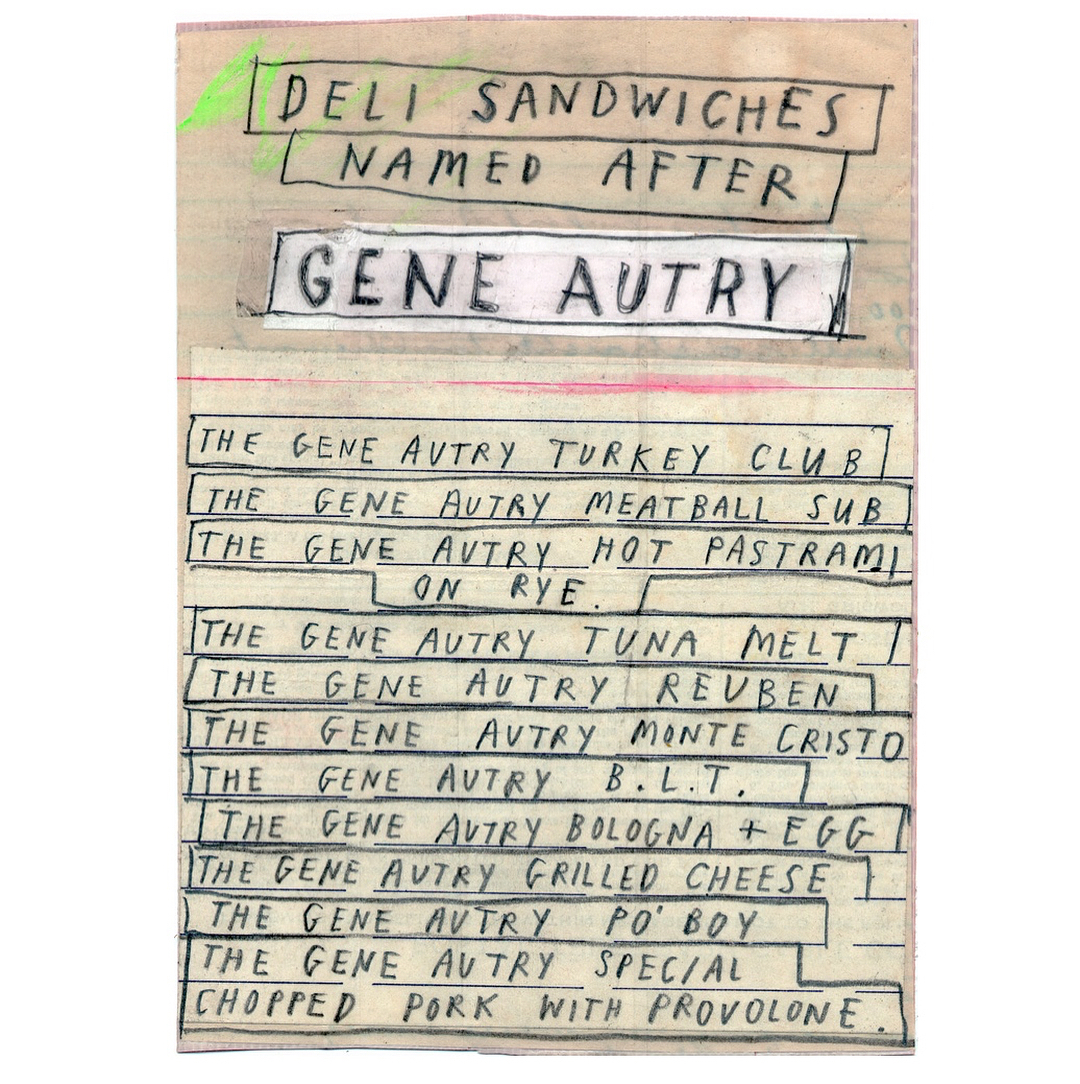 DELI SANDWICHES
NAMED AFTER
GENE AUTRY
THE GENE AUTRY TURKEY CLUB
THE GENE AUTRY MEATBALL SUB
THE GENE AUTRY HOT PASTRAMI
ON RYE.
THE GENE AUTRY TUNA MELT
THE GENE AUTRY REUBEN
THE GENE AUTRY MONTE CRISTO
THE GENE AUTRY B.L.T.
THE GENE AUTRY BOLOGNA + EGG
THE GENE AUTRY GRILLED CHEESE
THE GENE AUTRY PO' BOY
THE GENE AUTRY SPECIAL
CHOPPED PORK WITH PROVOLONE.